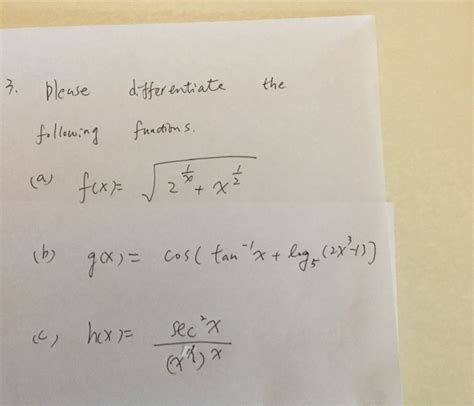 3. please differentiate the
following functions.
(a) f(x)= √(2^(1/x) + x^(1/2))
(b) g(x) = cos(tan⁻¹x + log₅(2x³-1))
(c) h(x) = sec²x / (x^x)^x